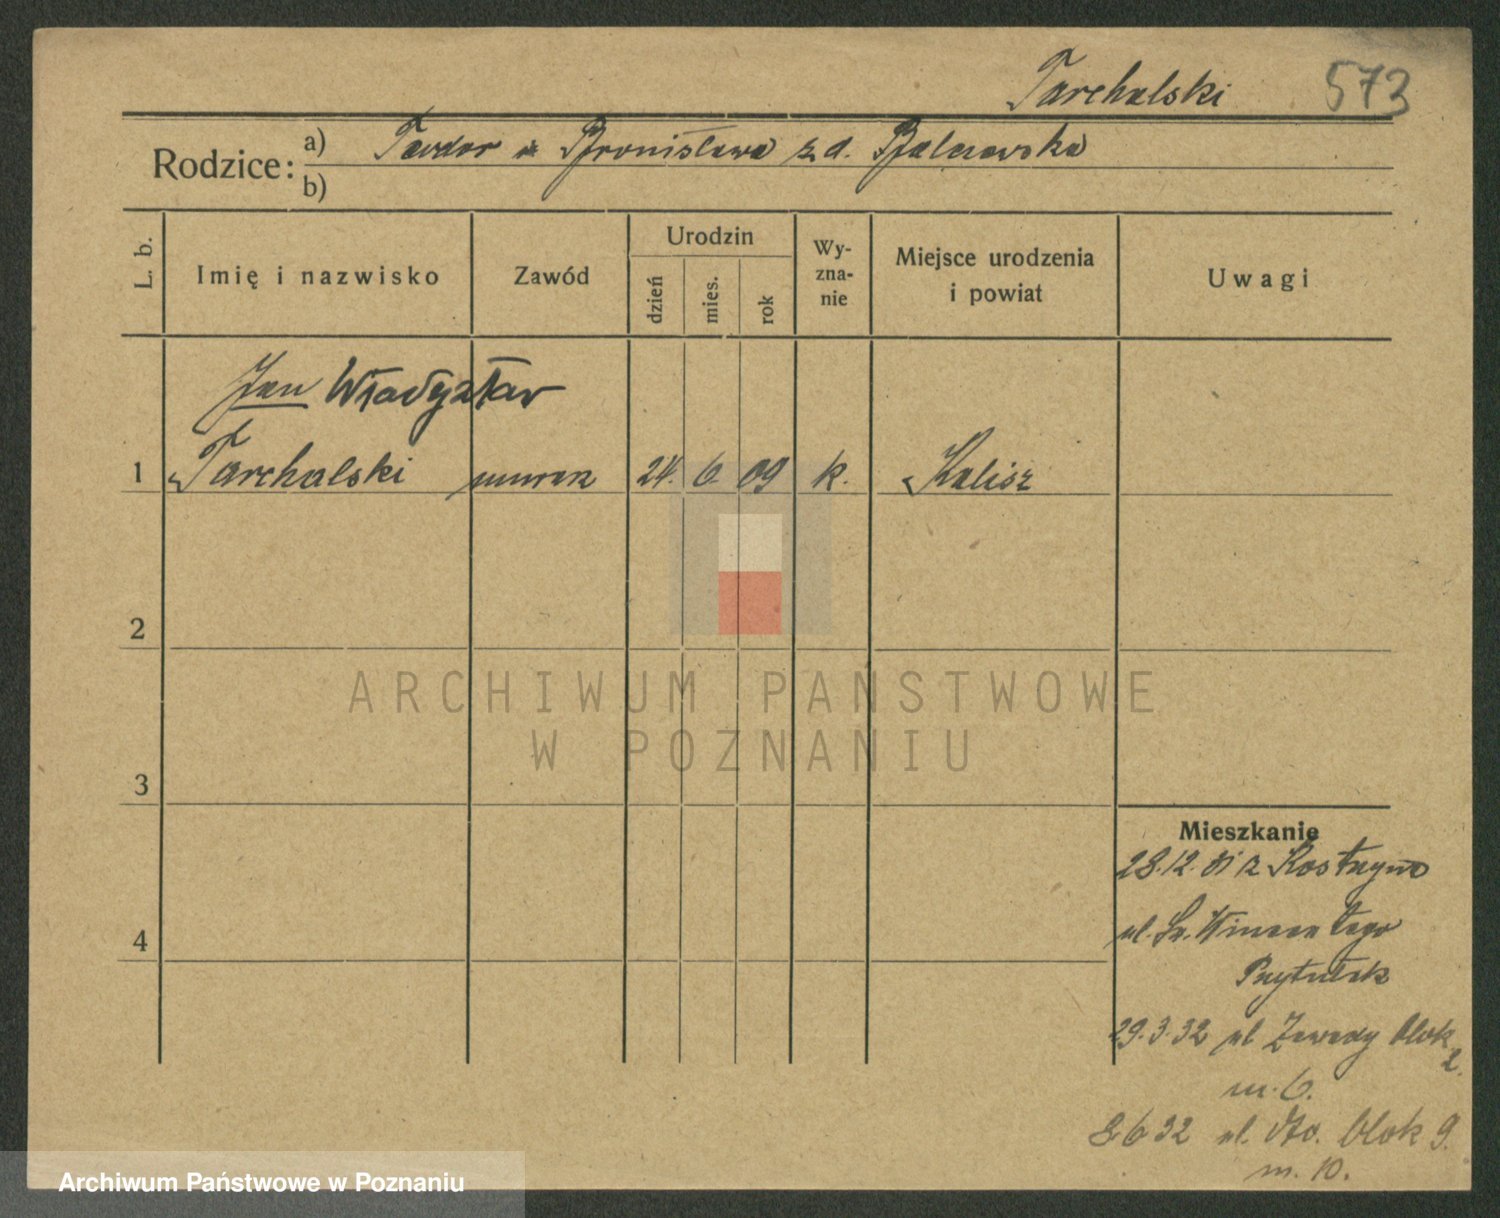 Tarchalski 573
Rodzice: a) Teodor i Bronisława z d.
b)
L. b. Imię i nazwisko Zawód Urodzin dzień mies. rok Wy-zna-nie Miejsce urodzenia i powiat Uwagi
Jan Władysław
1 Tarchalski murarz 24. 6 09 k. Kalisz
2
ARCHIWUM PAŃSTWOWE
W POZNANIU
3
Mieszkanie
28.12.31 z Kostrzyna
4 ul. Św. Wincentego
Przytułek
29.3.32 ul Zawady blok 2.
m. 6.
8 6 32 ul. dto. blok 9.
m. 10.
Archiwum Państwowe w Poznaniu